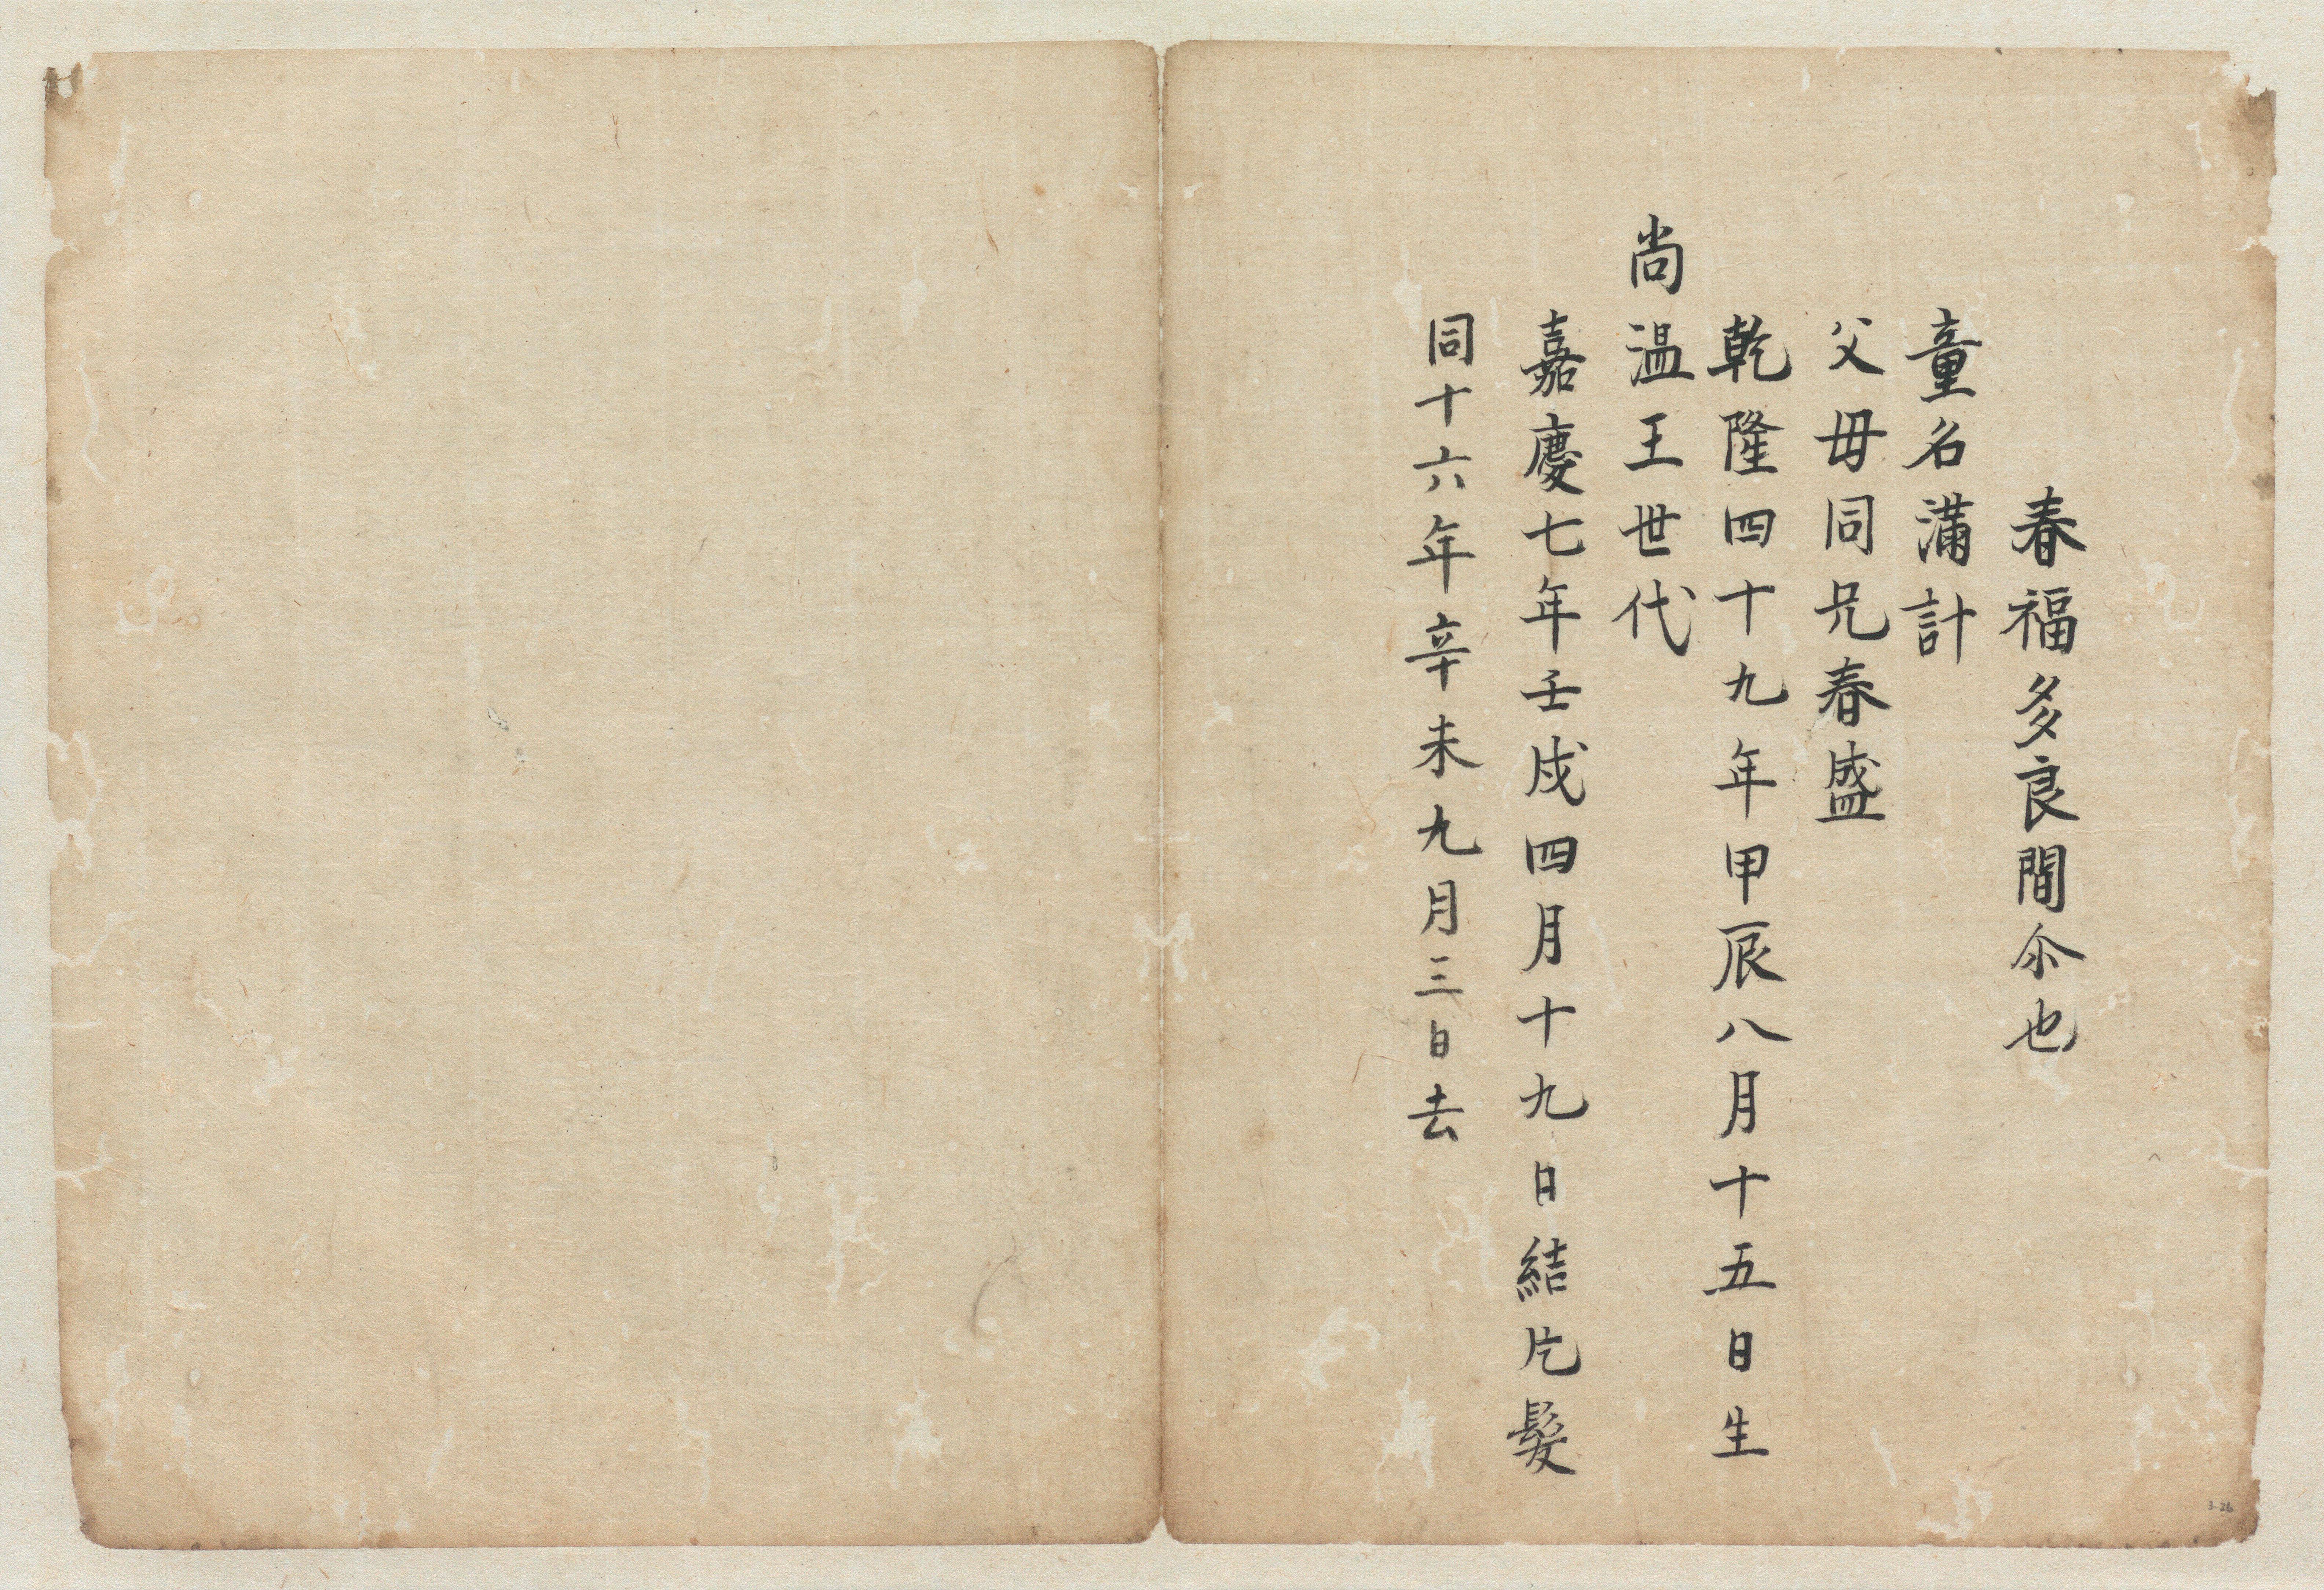 春福多良間尒也
童名満計
父毋同兄春盛
乾隆四十九年甲辰八月十五日生
尚温王世代
嘉慶七年壬戌四月十九日結片髮
同十六年辛未九月三日去
3-26